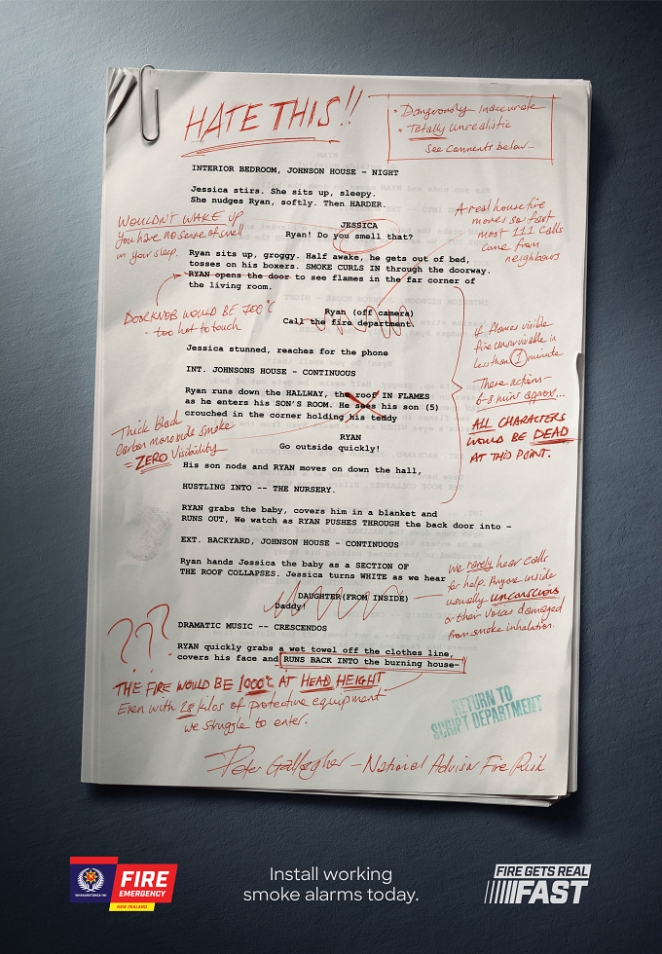 HATE THIS!!
• Dangerously Inaccurate
• Totally Unrealistic
See comments below-
INTERIOR BEDROOM, JOHNSON HOUSE - NIGHT
Jessica stirs. She sits up, sleepy.
She nudges Ryan, softly. Then HARDER.
WOULDN'T WAKE UP
You have no sense of smell
in your sleep.
JESSICA
Ryan! Do you smell that?
A real house fire
moves so fast
most 111 calls
come from
neighbours
Ryan sits up, groggy. Half awake, he gets out of bed,
tosses on his boxers. SMOKE CURLS IN through the doorway.
RYAN opens the door to see flames in the far corner of
the living room.
DOORKNOB WOULD BE 700°C
- too hot to touch
Ryan (off camera)
Call the fire department.
Jessica stunned, reaches for the phone
INT. JOHNSONS HOUSE - CONTINUOUS
If flames visible
fire unsurvivable in
less than 1 minute
These actions-
6-8 mins approx...
ALL CHARACTERS
WOULD BE DEAD
AT THIS POINT.
Ryan runs down the HALLWAY, the roof IN FLAMES
as he enters his SON'S ROOM. He sees his son (5)
crouched in the corner holding his teddy
Thick Black
Carbon monoxide smoke
= ZERO Visibility
RYAN
Go outside quickly!
His son nods and RYAN moves on down the hall,
HUSTLING INTO -- THE NURSERY.
RYAN grabs the baby, covers him in a blanket and
RUNS OUT, We watch as RYAN PUSHES THROUGH the back door into -
EXT. BACKYARD, JOHNSON HOUSE - CONTINUOUS
Ryan hands Jessica the baby as a SECTION OF
THE ROOF COLLAPSES. Jessica turns WHITE as we hear
DAUGHTER(FROM INSIDE)
Daddy!
We rarely hear calls
for help. Anyone inside
usually unconscious
or their voices damaged
from smoke inhalation.
DRAMATIC MUSIC -- CRESCENDOS
???
RYAN quickly grabs a wet towel off the clothes line,
covers his face and RUNS BACK INTO the burning house-
THE FIRE WOULD BE 1000°C AT HEAD HEIGHT
Even with 28 kilos of protective equipment
we struggle to enter.
RETURN TO
SCRIPT DEPARTMENT
Peter Gallagher - National Advisor Fire Risk
FIRE
EMERGENCY
NEW ZEALAND
Install working
smoke alarms today.
FIRE GETS REAL
FAST